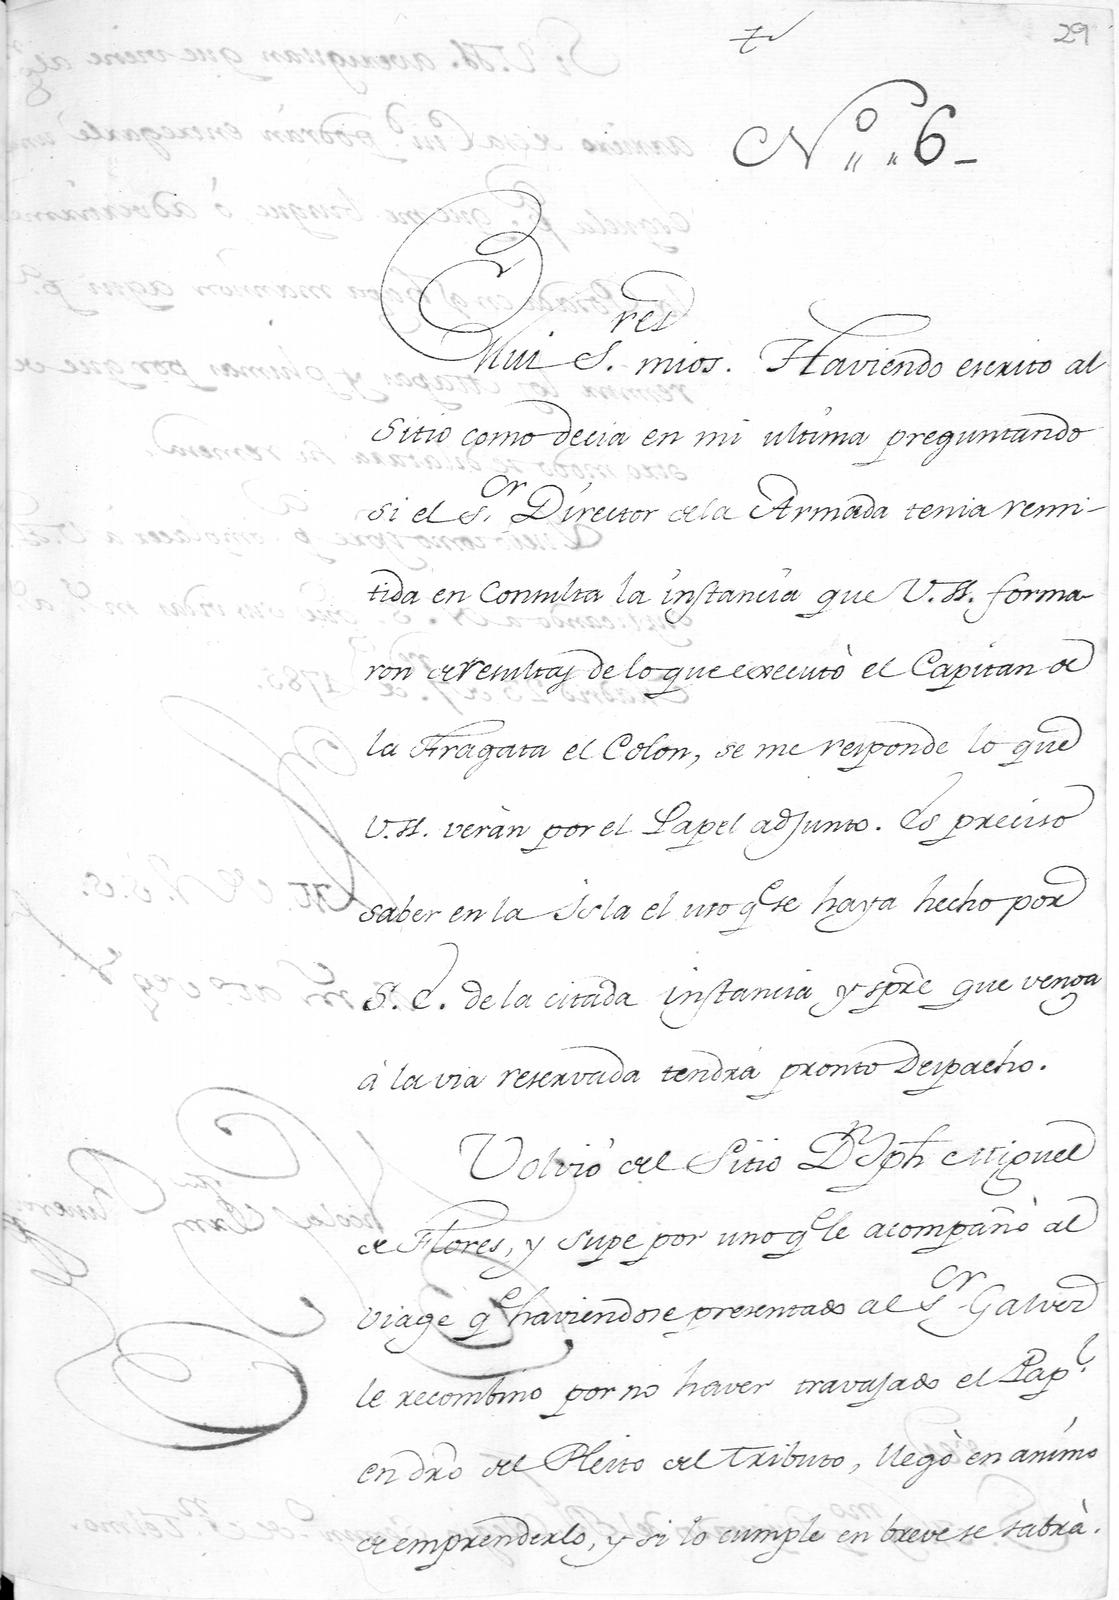 29
N.º 6
Mui S.res mios. Haviendo escrito al
Sitio como decia en mi ultima preguntando
si el S.or Director de la Armada tenia remi-
tida en Consulta la instancia que V.SS. forma-
ron de resultas de lo que executò el Capitan de
la Fragata el Colon, se me responde lo que
V.SS. veràn por el Papel adjunto. Es preciso
saber en la Isla el uso q.e se haya hecho por
S. E. de la citada instancia y spre que venga
à la via reservada tendrà pronto Despacho.
Volviò del Sitio D.n Jph Miguel
de Flores, y supe por uno q.e le acompañò al
viage q.e haviendose presentado al S.or Galvez
le recombino por no haver travajado el Pap.l
en dro del Pleito del tributo, llegò en animo
de emprenderlo, y si lo cumple en breve se sabrà.